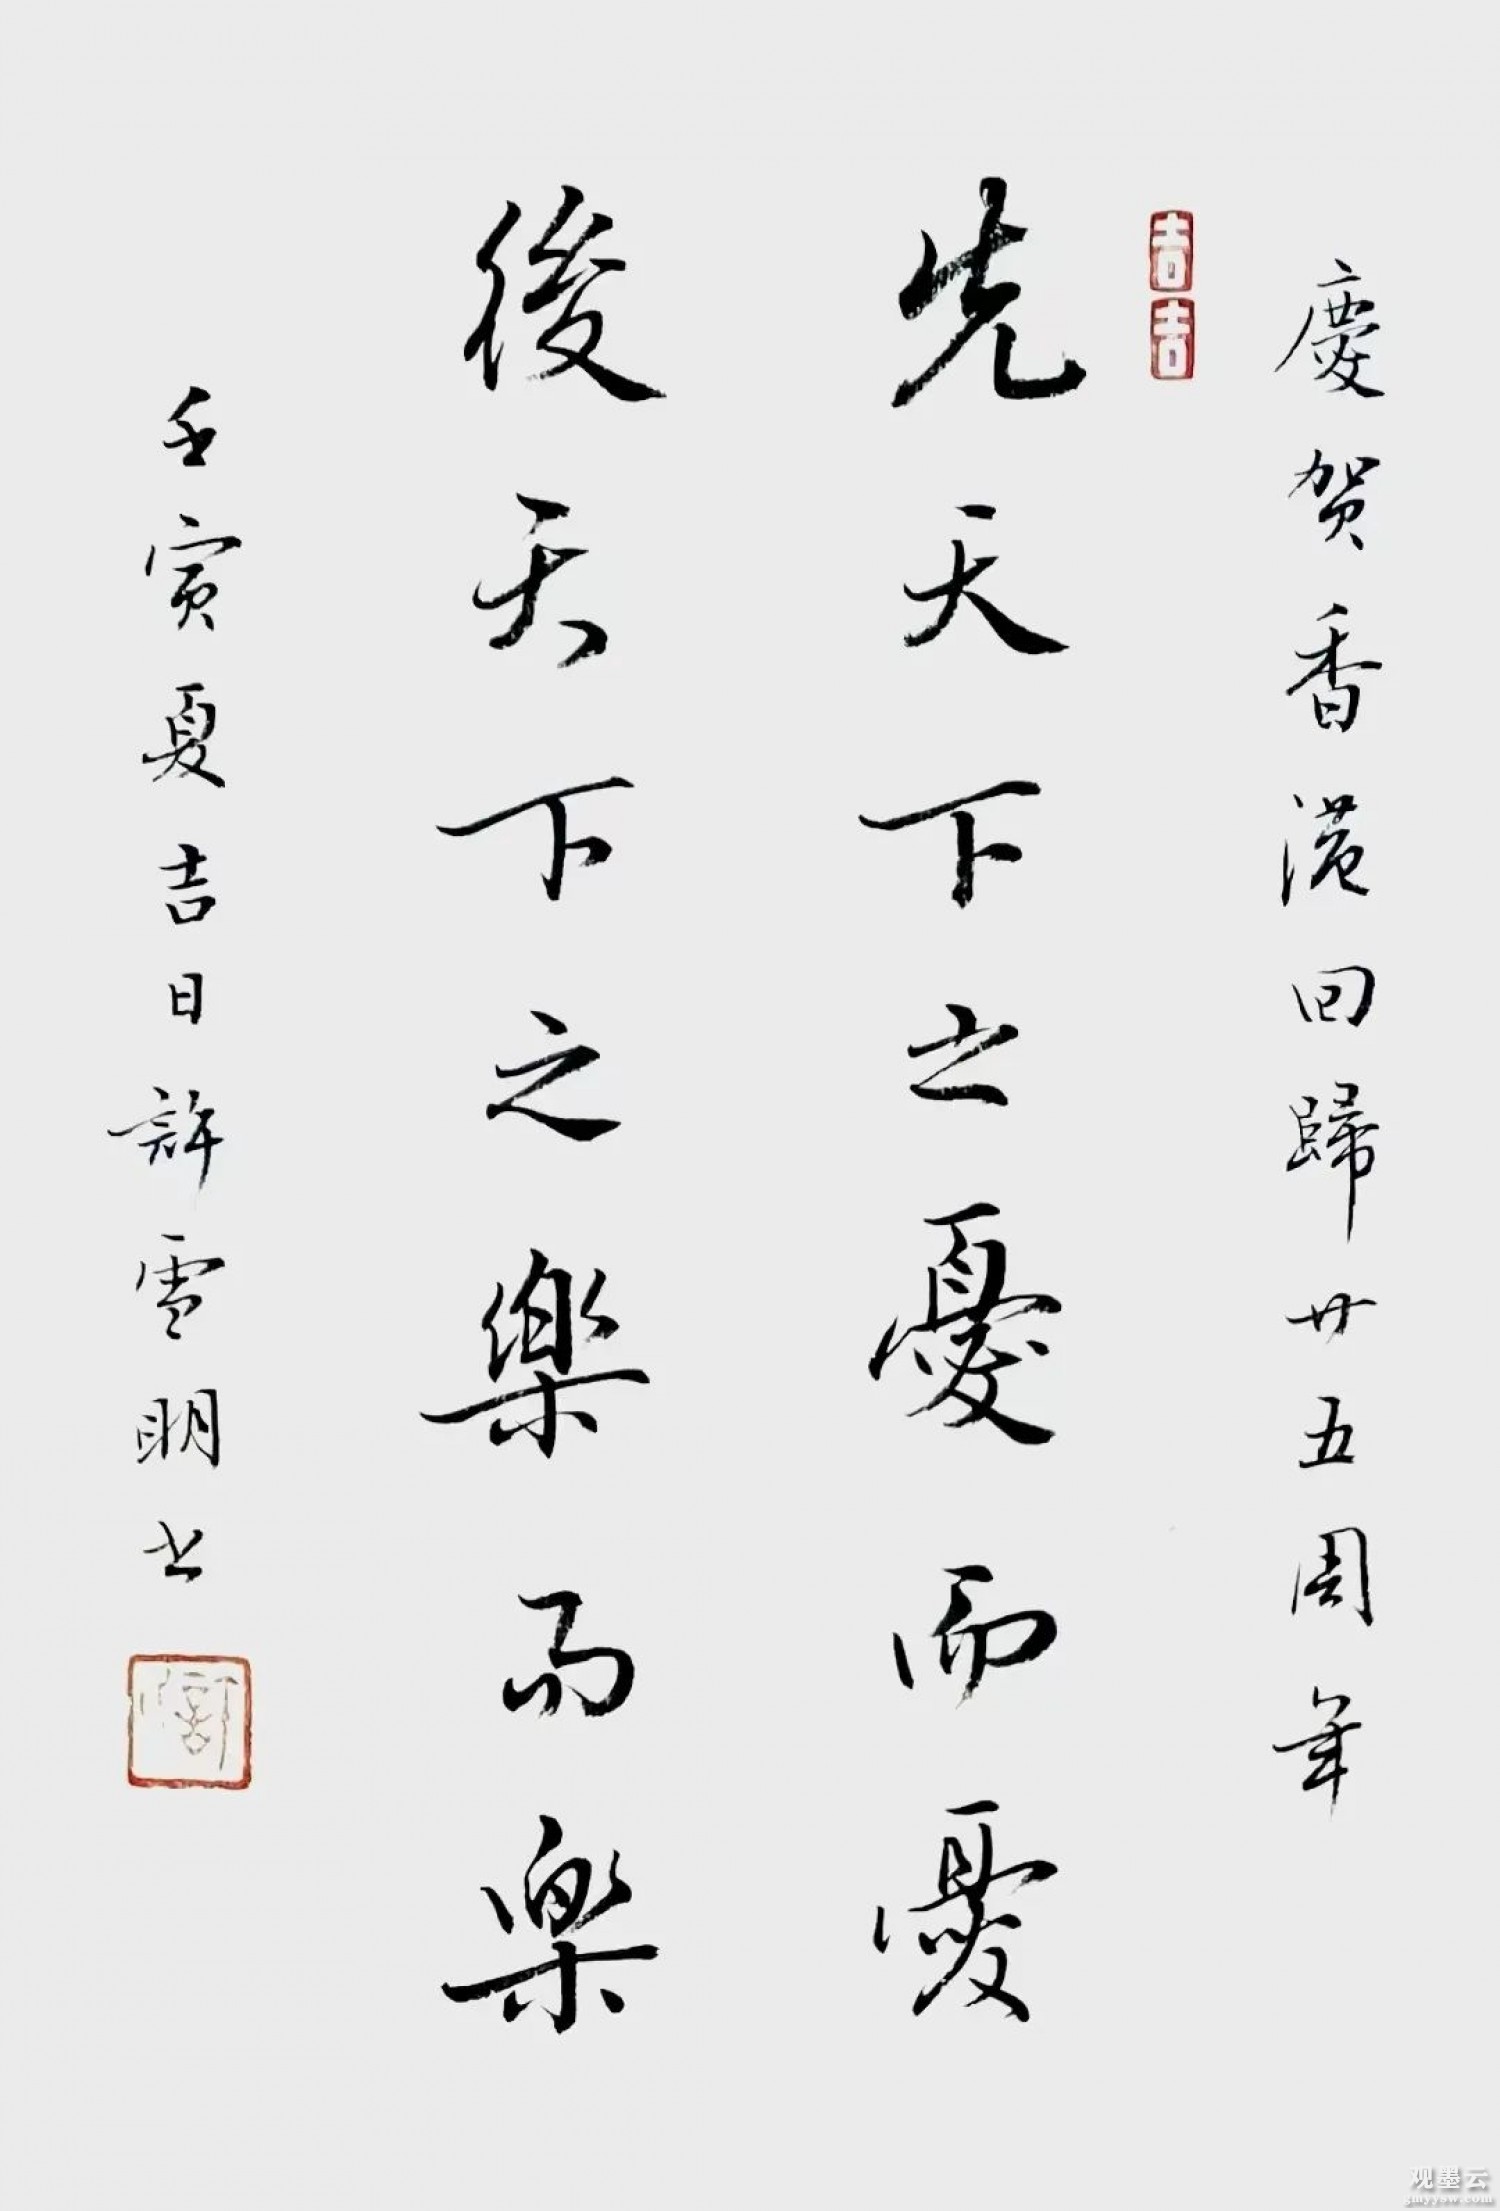 慶贺香港回歸廿五周年
吉吉
先天下之憂而憂
後天下之樂而樂
壬寅夏吉日許雪明书
观墨云
gmyysw.com